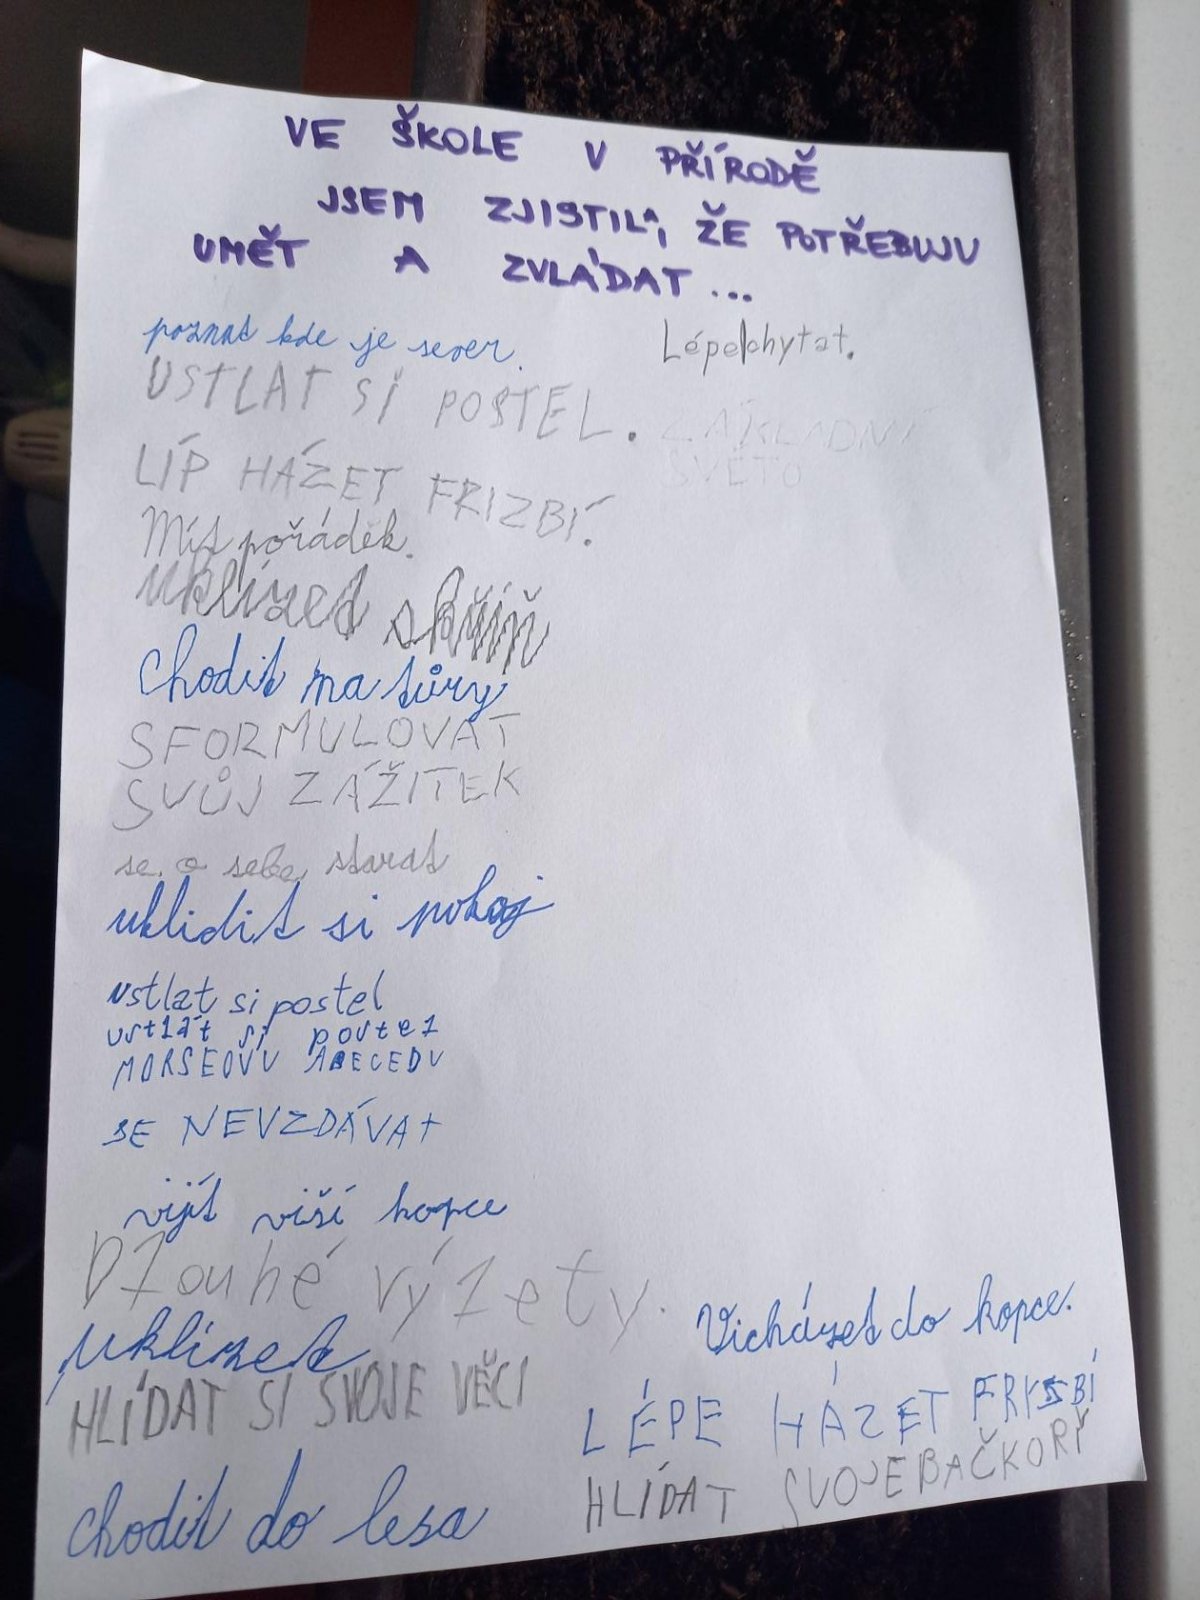 VE ŠKOLE V PŘÍRODĚ
JSEM ZJISTILA, ŽE POTŘEBUJU
UMĚT A ZVLÁDAT...
poznat kde je sever.
USTLAT SI POSTEL.
LÍP HÁZET FRIZBÍ.
Mít pořádek.
uklízet skříň
chodit na túry
SFORMULOVAT
SVŮJ ZÁŽITEK
se o sebe starat
uklidit si pokoj
ustlat si postel
ustlat si postel
MORSEOVU ABECEDU
SE NEVZDÁVAT
vijít viší kopce
Dlouhé výlety.
uklízet
HLÍDAT SI SVOJE VĚCI
chodit do lesa
Lépe chytat.
ZÁKLADNÍ
SVĚTO
Vicházet do kopce.
LÉPE HÁZET FRYSBÍ
HLÍDAT SVOJE BAČKORY